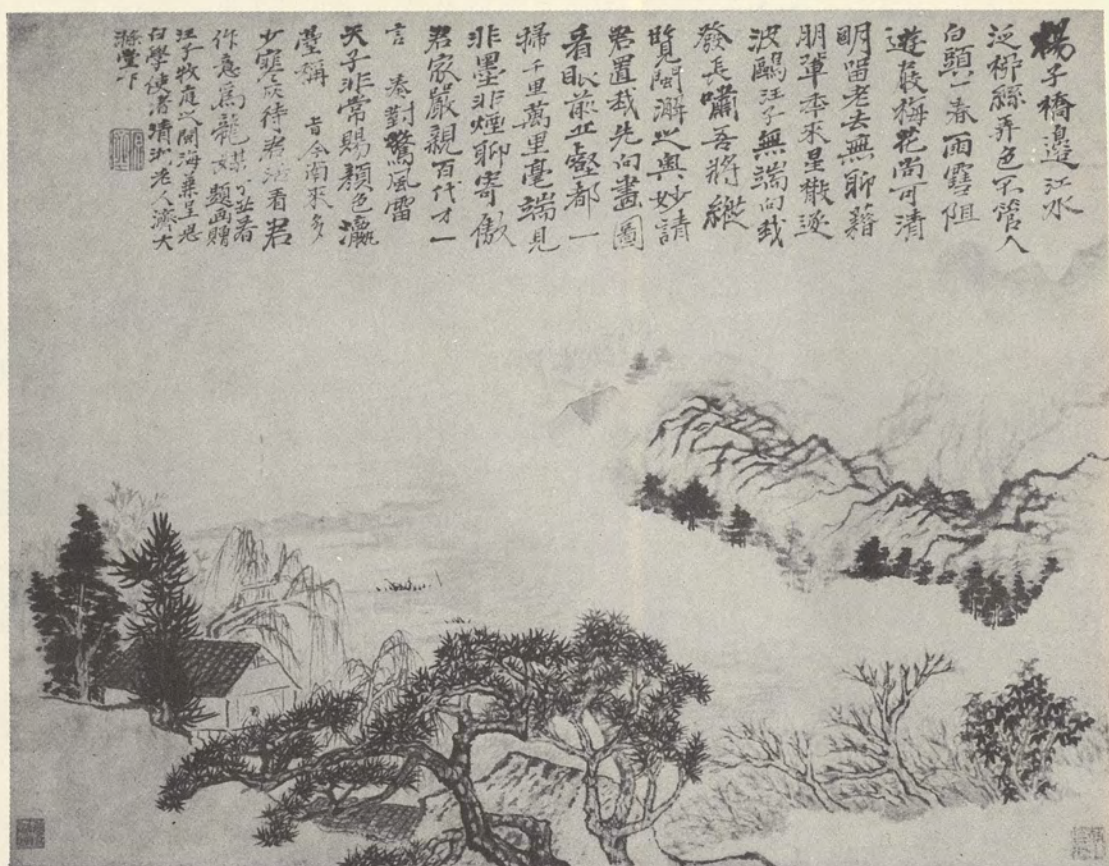 楊子橋邊江水
泛柳絲弄色不管人
白頭一春雨雪阻
遊屐梅花尚可清
明留老去無聊藉
朋輩年來星散逐
波鷗汪子無端向我
發長嘯吾將縱
覽閩海之奧妙請
君置我先向畫圖
看眼前丘壑都一
掃千里萬里毫端見
非墨非煙聊寄傲
君家嚴親百代才一
言 奏對驚風雷
天子非常賜顏色瀛
臺稱 旨今南來多
少寒灰待君活看君
作意為龍媒 題畫贈
汪子牧庭之閩海兼呈思
白學使者清湘老人濟大
滌堂下